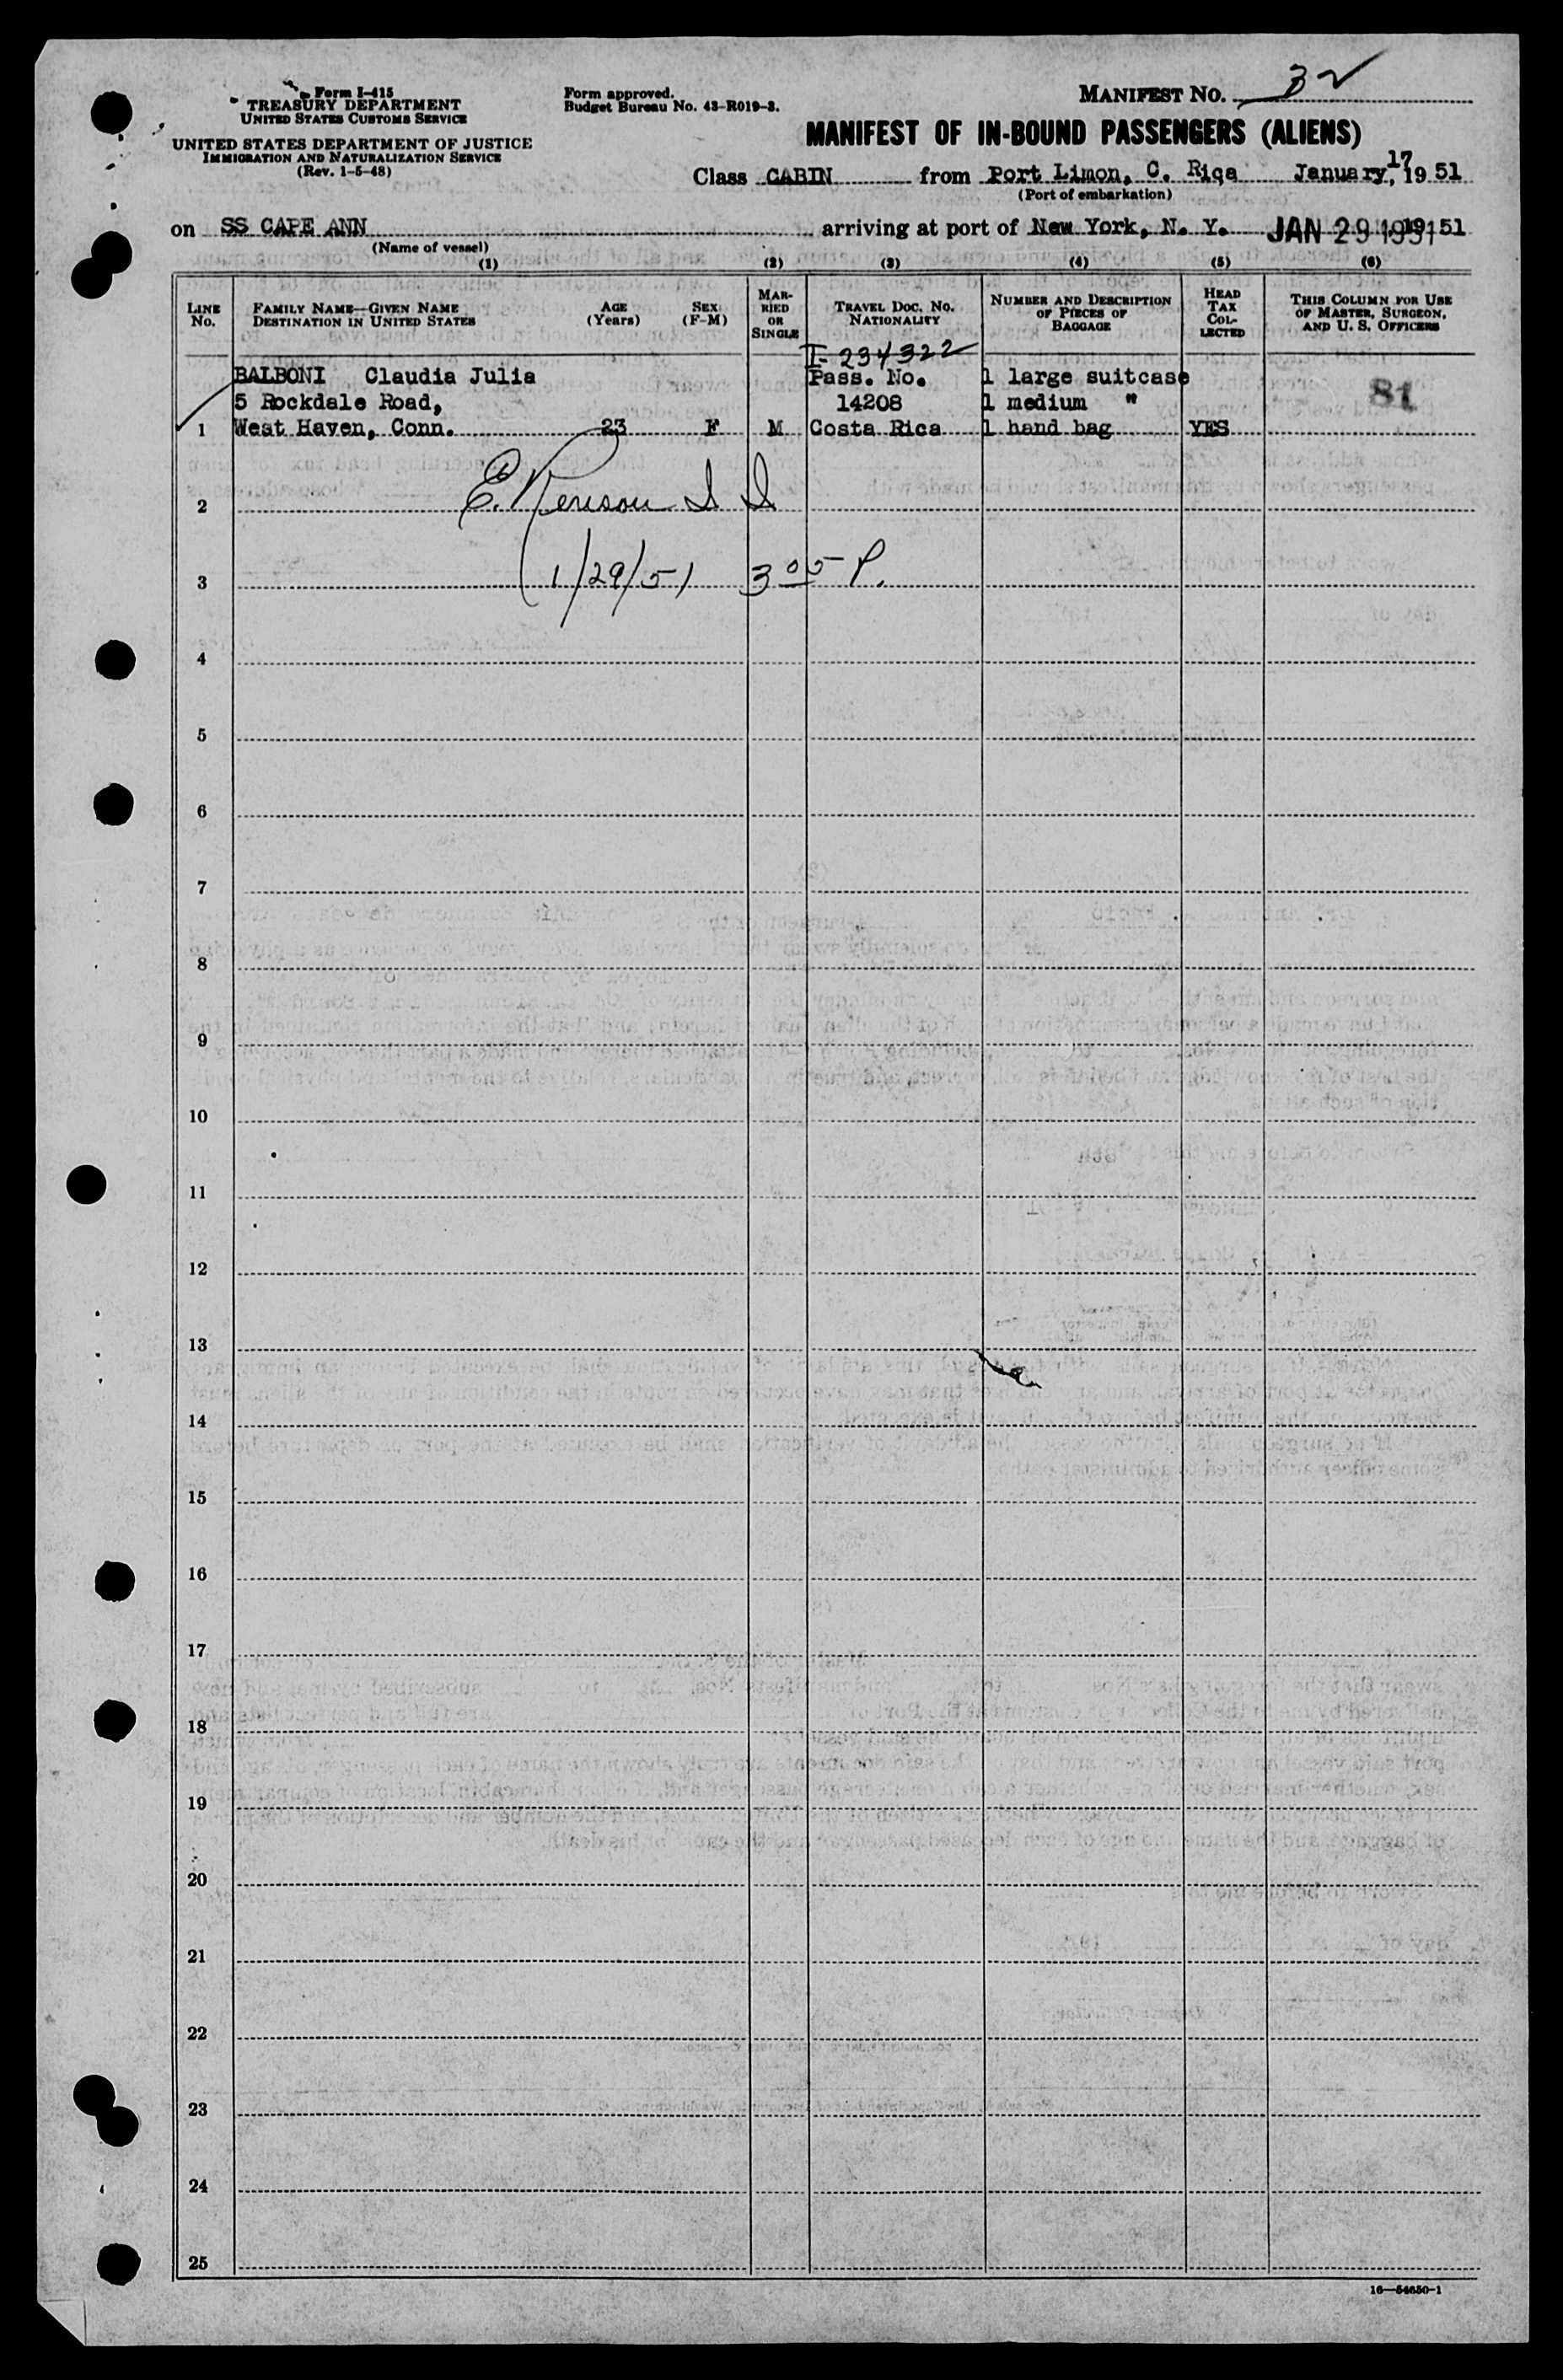 Form I-415
TREASURY DEPARTMENT
UNITED STATES CUSTOMS SERVICE
UNITED STATES DEPARTMENT OF JUSTICE
IMMIGRATION AND NATURALIZATION SERVICE
(Rev. 1-5-48)
Form approved.
Budget Bureau No. 43-R019-3.
MANIFEST NO. 32
MANIFEST OF IN-BOUND PASSENGERS (ALIENS)
Class CABIN from Port Limon, C. Rica January, 17 19 51
(Port of embarkation)
on SS CAPE ANN arriving at port of New York, N. Y. JAN 29 1951 , 19 51
(Name of vessel)
(1) (2) (3) (4) (5) (6)
LINE No. FAMILY NAME—GIVEN NAME DESTINATION IN UNITED STATES AGE (Years) SEX (F-M) MARRIED OR SINGLE TRAVEL DOC. NO. NATIONALITY NUMBER AND DESCRIPTION OF PIECES OF BAGGAGE HEAD TAX COLLECTED THIS COLUMN FOR USE OF MASTER, SURGEON, AND U. S. OFFICERS
I-234322
BALBONI Claudia Julia Pass. No. 1 large suitcase
5 Rockdale Road, 14208 1 medium " 81
1 West Haven, Conn. 23 F M Costa Rica 1 hand bag YES
2 E.
3 1/29/51 3 05 P.
4
5
6
7
8
9
10
11
12
13
14
15
16
17
18
19
20
21
22
23
24
25
16—54650-1